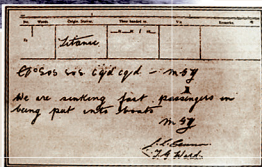 No. Words. Origin Station. Time handed in Via Remarks.
By Titanic
CQD SOS SOS CQD CQD - MGY
We are sinking fast passengers
being put into boats
MGY